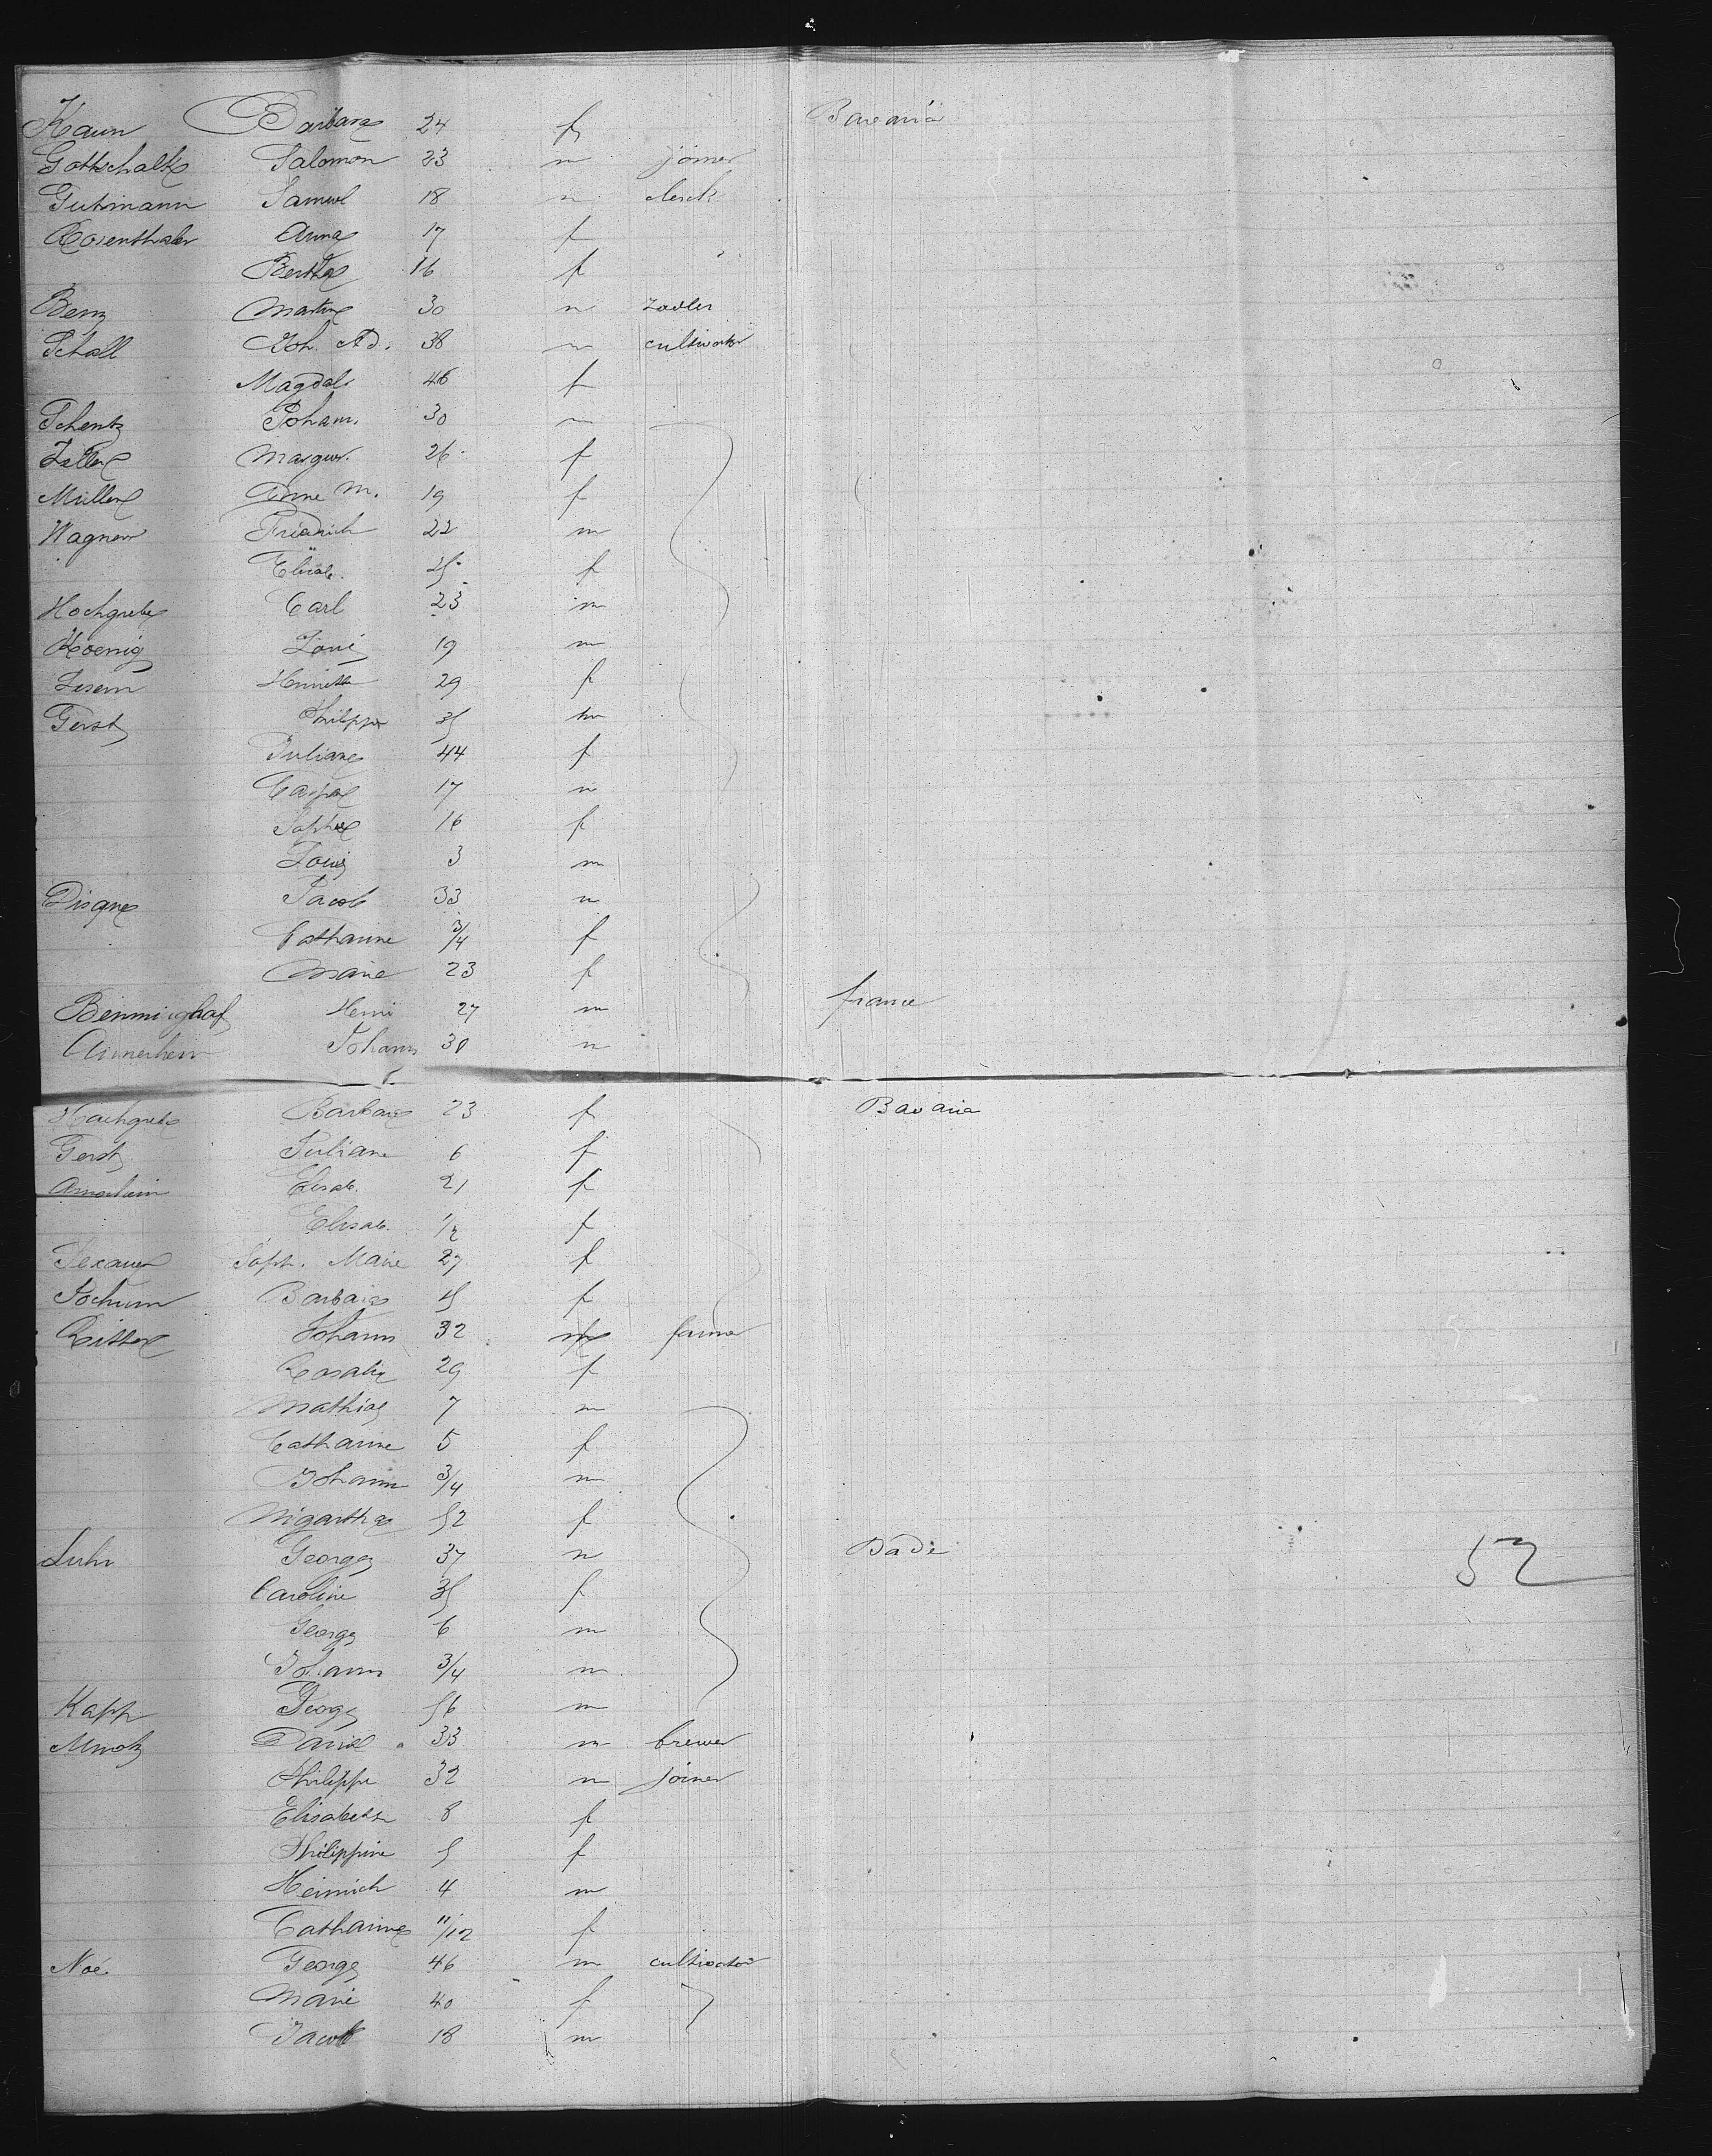 Kaun Barbara 24 f Bavaria
Gottschalk Salomon 23 m joiner
Gutmann Samuel 18 m clerck
Rosenthaler Anna 17 f
Bertha 16 f
Benz Martin 30 m
Schall Joh. Ad. 38 m cultivator
Magdal. 46 f
Schentz Johann. 30 m
Zeller Margur. 26 f
Müller Anne M. 19 f
Wagner Friedrich 22 m
Elisab. 25 f
Hochgrebe Carl 23 m
Koenig Louis 19 m
Lesem Henriette 29 f
Gerst Philippe 35 m
Juliane 44 f
Caspar 17 m
Sophie 16 f
Louis 3 m
Disque Jacob 33 m
Catharine 3/4 f
Marie 23 f
Benminghof Henri 27 m france
Johann 30 m
Hochgrebe Barbara 23 f Bavaria
Gerst Juliane 6 f
Elisab. 21 f
Elisab. 1/2 f
Sexauer Soph. Marie 27 f
Jochum Barbara 45 f
Ritter Johann 32 m farmer
Rosalie 29 f
Mathias 7 m
Catharine 5 f
Johann 3/4 m
52 f
Luhr George 37 m Bade
Caroline 35 f
George 6 m
Johann 3/4 m
52
Kapp George 56 m
Daniel 33 m brewer
Philippe 32 m joiner
Elisabeth 8 f
Philippine 5 f
Heinrich 4 m
Catharine 11/12 f
Noé George 46 m cultivator
Marie 40 f
Jacob 18 m